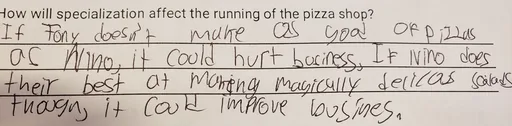 How will specialization affect the running of the pizza shop?
If Tony doesn't make as good of pizzas
as Nino, it could hurt businss, If Nino does
their best at making magically delicas salads
though, it could improve busines.